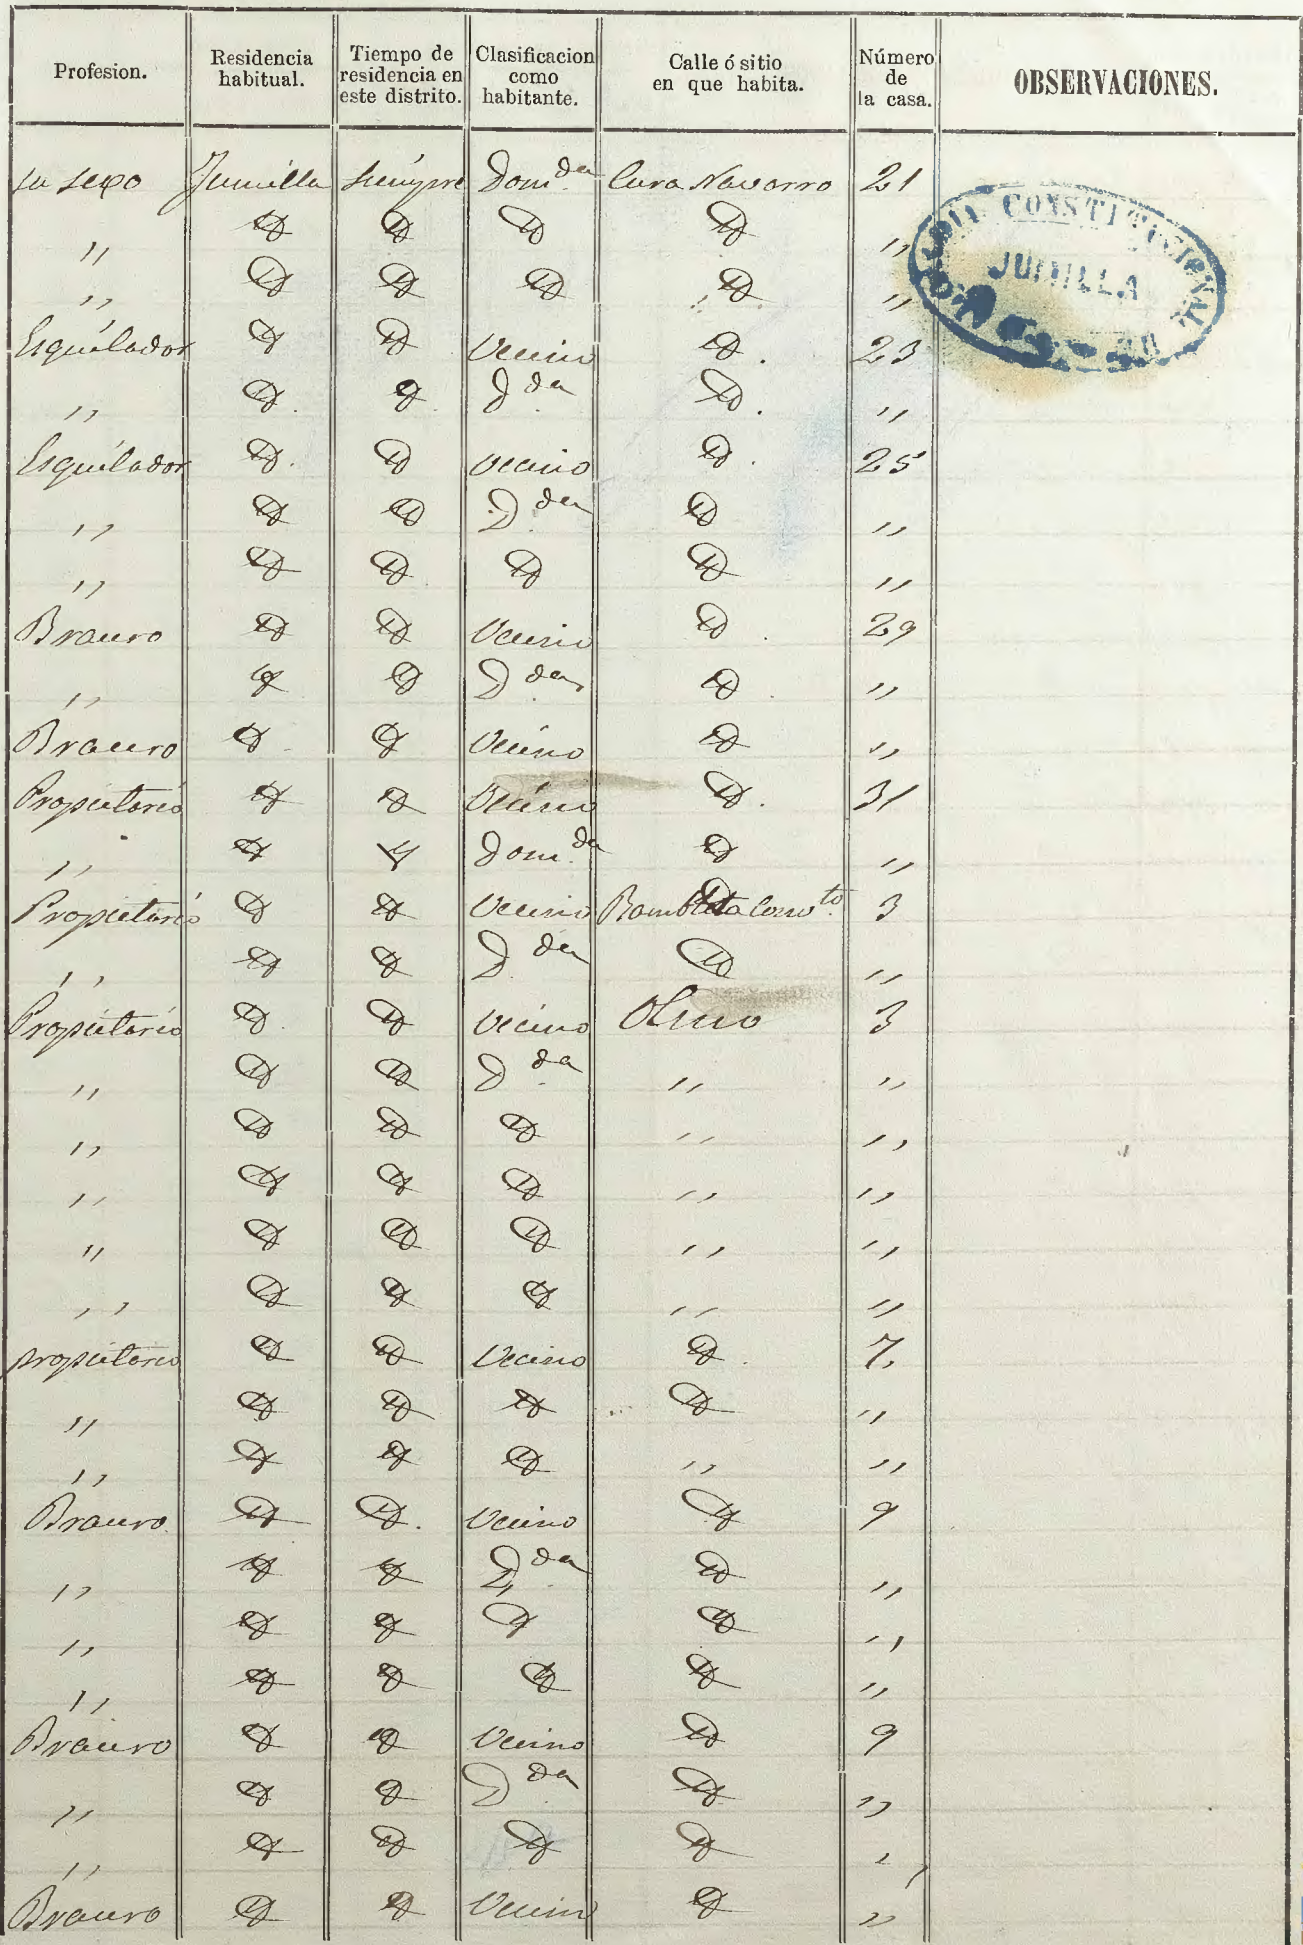 Profesion. Residencia habitual. Tiempo de residencia en este distrito. Clasificacion como habitante. Calle ó sitio en que habita. Número de la casa. OBSERVACIONES.
su sexo Jumilla siempre Dom.da Cura Navarro 21
" D D D D "
" D D D D "
Esquilador D D Vecino D. 23
" D. D. D.da D. "
Esquilador D. D Vecino D. 25
" D D D.da D "
" D D D D "
Bracero D D Vecino D. 29
" D D D.da D. "
Bracero D. D Vecino D "
Propietario D D Vecino D. 31
" D D Dom.da D "
Propietario D D Vecino 3
" D D D.da D "
Propietario D. D Vecino Olmo 3
" D D D.da " "
" D D D " "
" D D D " "
" D D D " "
" D D D " "
propietario D D Vecino D. 7.
" D D D D "
" D D D " "
Bracero. D D. Vecino D 9
" D D D.da D "
" D D D D "
" D D D D "
Bracero D D Vecino D 9
" D D D.da D "
" D D D D "
Bracero D D Vecino D "
CONSTITUCIONAL
JUMILLA